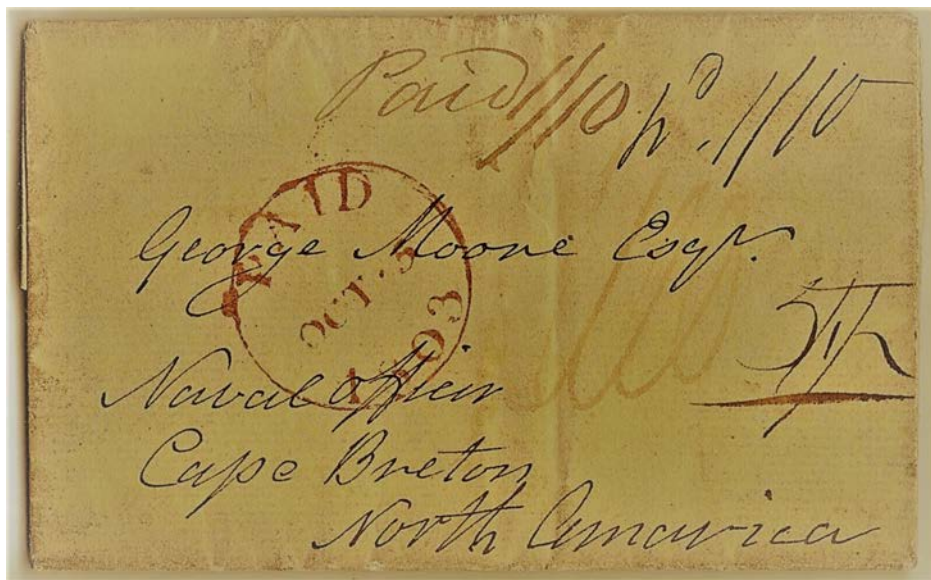 Paid 1/10 pd. 1/10
PAID
OCT 5
1803
George Moore Esqr.
Naval Officer
Cape Breton
North America